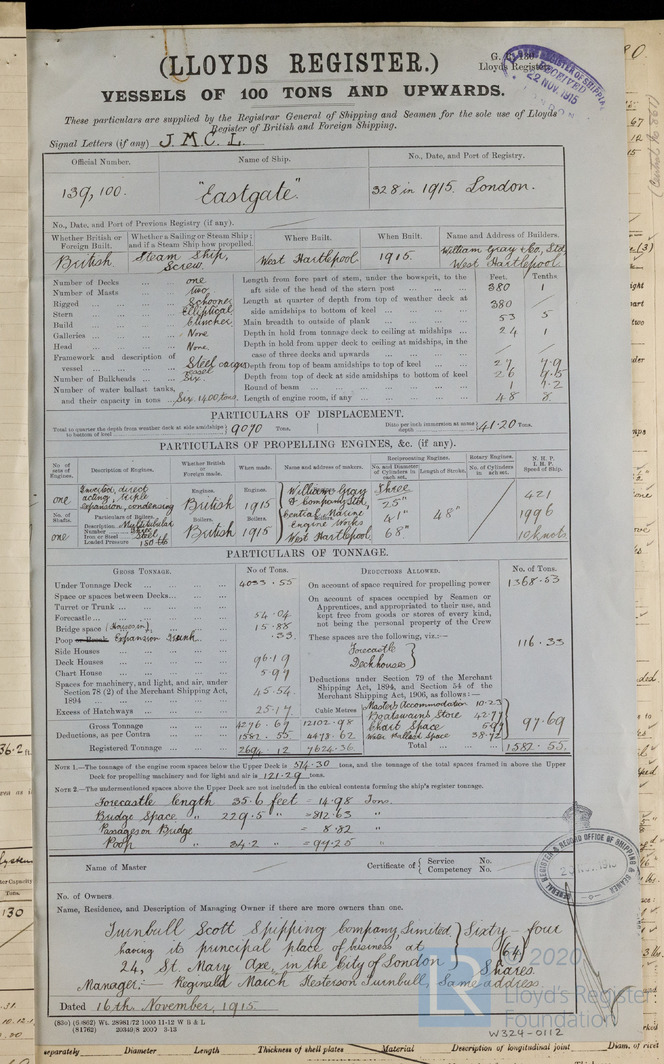 (LLOYDS REGISTER.)
VESSELS OF 100 TONS AND UPWARDS.
These particulars are supplied by the Registrar General of Shipping and Seamen for the sole use of Lloyds
Register of British and Foreign Shipping.
RECEIVED
22 NOV. 1915
Signal Letters (if any) J.M.C.L.
Official Number. Name of Ship. No., Date, and Port of Registry.
139,100. "Eastgate". 328 in 1915. London.
No., Date, and Port of Previous Registry (if any).
Whether British or Foreign Built. Whether a Sailing or Steam Ship; and if a Steam Ship how propelled. Where Built. When Built. Name and Address of Builders.
British Steam Ship, Screw. West Hartlepool 1915. William Gray & Co., Ltd, West Hartlepool
Feet. Tenths.
Number of Decks one
Number of Masts two
Rigged Schooner
Stern Elliptical
Build Clincher
Galleries None
Head None
Framework and description of vessel Steel cargo vessel
Number of Bulkheads Six.
Number of water ballast tanks, and their capacity in tons Six. 1400 tons.
Length from fore part of stem, under the bowsprit, to the aft side of the head of the stern post 380 1
Length at quarter of depth from top of weather deck at side amidships to bottom of keel 380 /
Main breadth to outside of plank 53 5
Depth in hold from tonnage deck to ceiling at midships 24 1
Depth in hold from upper deck to ceiling at midships, in the case of three decks and upwards / /
Depth from top of beam amidships to top of keel 27 7.9
Depth from top of deck at side amidships to bottom of keel 26 7.5
Round of beam 1 1.2
Length of engine room, if any 48 8
PARTICULARS OF DISPLACEMENT.
Total to quarter the depth from weather deck at side amidships to bottom of keel 9070 Tons. Ditto per inch immersion at same depth 41.20 Tons.
PARTICULARS OF PROPELLING ENGINES, &c. (if any).
No. of sets of Engines. Description of Engines. Whether British or Foreign made. When made. Name and address of makers. Reciprocating Engines. Rotary Engines. N.H.P. I.H.P. Speed of Ship.
No. and Diameter of Cylinders in each set. Length of Stroke. No. of Cylinders in each set.
one Inverted, direct acting, triple expansion, condensing
Engines. British Engines. 1915
No. of Shafts. one
Particulars of Boilers.
Description Multitubular
Iron or Steel Steel
Loaded Pressure 180 lb
Boilers. British Boilers. 1915
William Gray & Company Ltd, Central Marine Engine Works West Hartlepool
Three 25" 41" 68" 48"
421
1996
10 knots
PARTICULARS OF TONNAGE.
GROSS TONNAGE. No. of Tons. DEDUCTIONS ALLOWED. No. of Tons.
Under Tonnage Deck 4033.55
Space or spaces between Decks
Turret or Trunk
Forecastle 54.04
Bridge space 15.88
Poop or Break Expansion Trunk .33
Side Houses
Deck Houses 96.19
Chart House 5.97
Spaces for machinery, and light, and air, under Section 78 (2) of the Merchant Shipping Act, 1894 45.54
Excess of Hatchways 25.17
Gross Tonnage 4276.67 12102.98
Deductions, as per Contra 1582.55 4478.62
Registered Tonnage 2694.12 7624.36
Cubic Metres
On account of space required for propelling power 1368.53
On account of spaces occupied by Seamen or Apprentices, and appropriated to their use, and kept free from goods or stores of every kind, not being the personal property of the Crew
These spaces are the following, viz.:—
Forecastle
Deckhouses 116.33
Deductions under Section 79 of the Merchant Shipping Act, 1894, and Section 54 of the Merchant Shipping Act, 1906, as follows:—
Master's Accommodation 10.23
Boatswain's Store 42.77
Chart Space 5.97
Water Ballast Space 38.72
97.69
Total 1582.55.
NOTE 1.—The tonnage of the engine room spaces below the Upper Deck is 514.30 tons, and the tonnage of the total spaces framed in above the Upper
Deck for propelling machinery and for light and air is 121.29 tons.
NOTE 2.—The undermentioned spaces above the Upper Deck are not included in the cubical contents forming the ship's register tonnage.
Forecastle length 35.6 feet = 14.98 Tons.
Bridge Space " 229.5 " = 812.63 "
Passages on Bridge = 8.82 "
Poop " 34.2 " = 97.25 "
Name of Master Certificate of Service No.
Competency No.
No. of Owners
Name, Residence, and Description of Managing Owner if there are more owners than one.
Turnbull Scott Shipping Company, Limited Sixty-four
having its principal place of business at (64)
24, St. Mary Axe, in the City of London Shares.
Manager:— Reginald March Kesterson Turnbull, Same address.
Dated 16th November, 1915.
W324-0112
© 2020
Lloyd's Register
Foundation
separately Diameter Length Thickness of shell plates Material Description of longitudinal joint